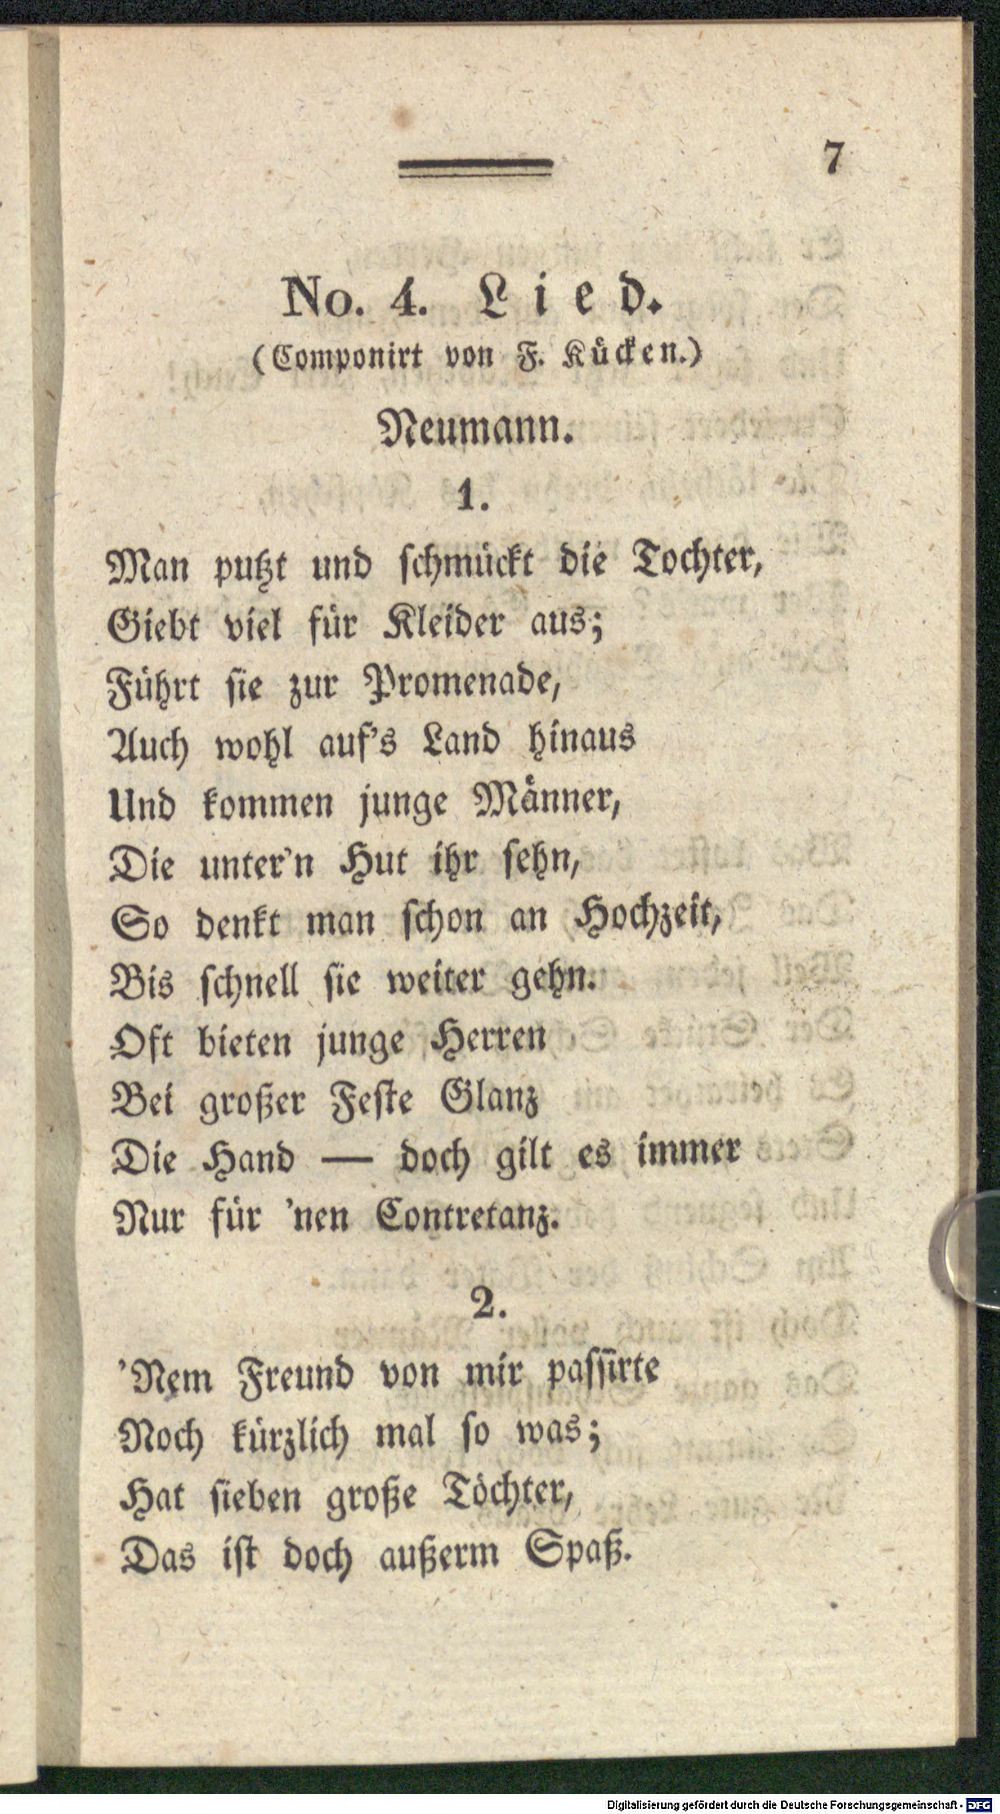 7
No. 4. Lied.
(Componirt von F. Kücken.)
Neumann.
1.
Man putzt und schmückt die Tochter,
Giebt viel für Kleider aus;
Führt sie zur Promenade,
Auch wohl auf's Land hinaus
Und kommen junge Männer,
Die unter'n Hut ihr sehn,
So denkt man schon an Hochzeit,
Bis schnell sie weiter gehn.
Oft bieten junge Herren
Bei großer Feste Glanz
Die Hand — doch gilt es immer
Nur für 'nen Contretanz.
2.
'Nem Freund von mir passirte
Noch kürzlich mal so was;
Hat sieben große Töchter,
Das ist doch außerm Spaß.
Digitalisierung gefördert durch die Deutsche Forschungsgemeinschaft - DFG